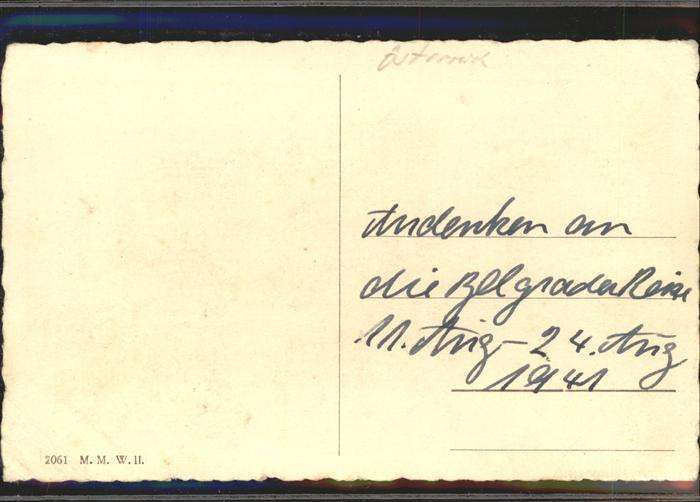 Österreich
Andenken an
die Belgrader Reise
11. Aug – 24. Aug
1941
2061 M. M. W. II.